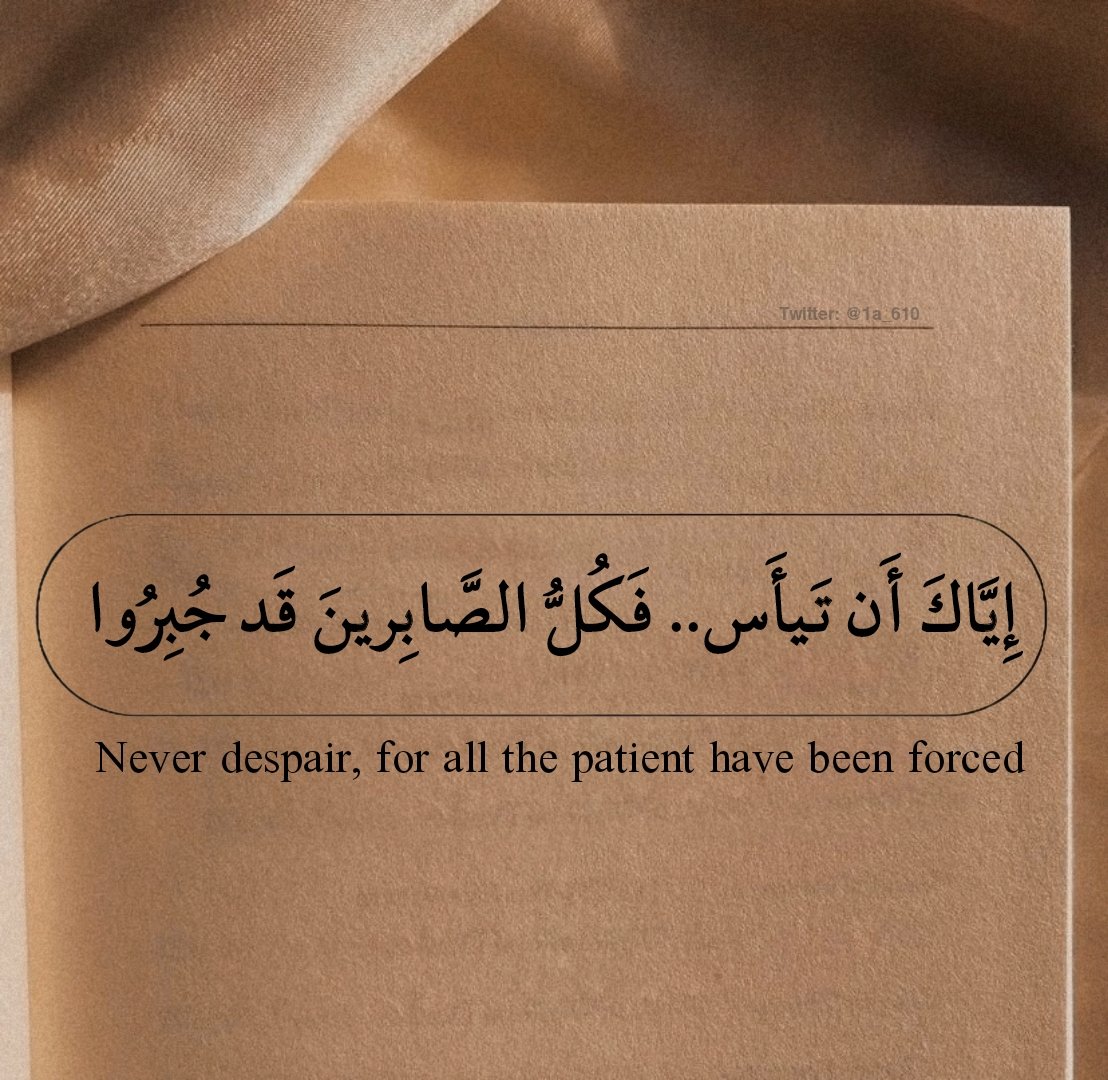 Twitter: @1a_610
إِيَّاكَ أَن تَيأَس.. فَكُلُّ الصَّابِرينَ قَد جُبِرُوا
Never despair, for all the patient have been forced